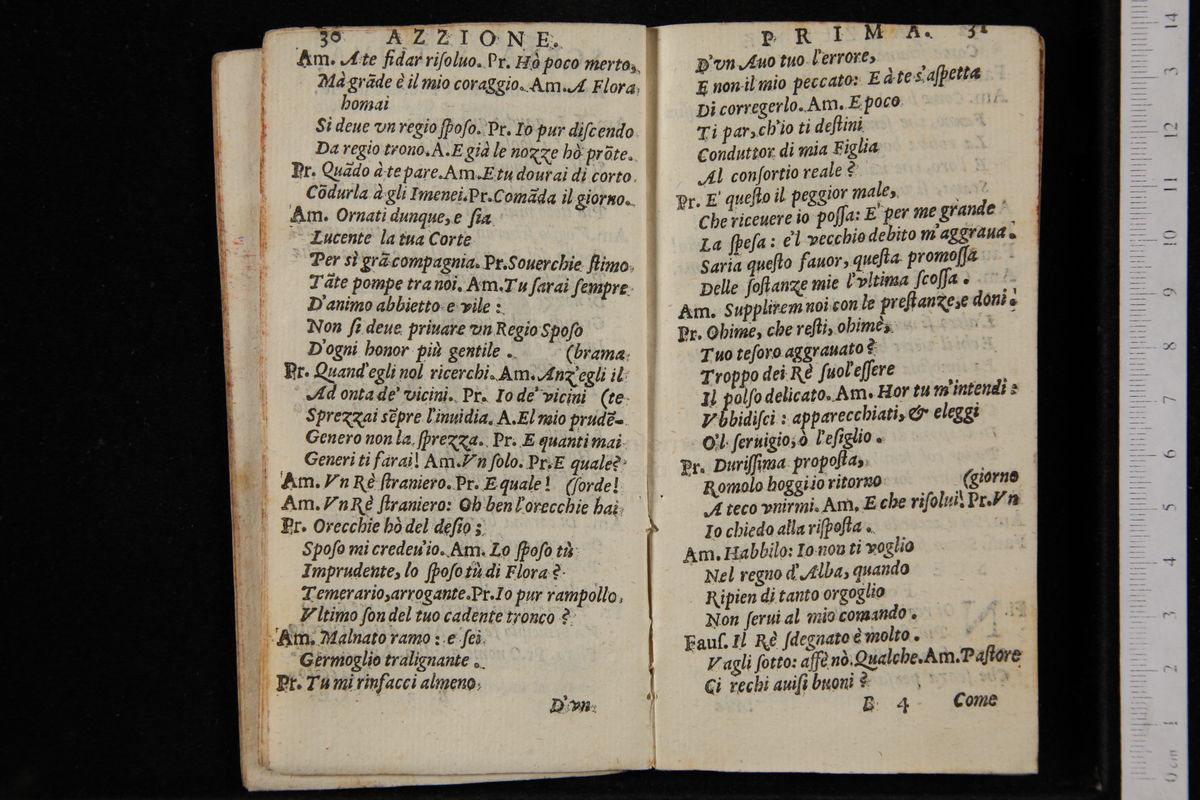 30 AZZIONE.
Am. A te fidar riſoluo. Pr. Hò poco merto,
Mà grãde è il mio coraggio. Am. A Flora
homai
Si deue vn regio ſpoſo. Pr. Io pur diſcendo
Da regio trono. A. E già le nozze hò prõte.
Pr. Quãdo à te pare. Am. E tu dourai di corto
Cõdurla à gli Imenei. Pr. Comãda il giorno.
Am. Ornati dunque, e ſia
Lucente la tua Corte
Per sì grã compagnia. Pr. Souerchie ſtimo
Tãte pompe tra noi. Am. Tu ſarai ſempre
D'animo abbietto e vile:
Non ſi deue priuare vn Regio Spoſo
D'ogni honor più gentile. (brama
Pr. Quand'egli nol ricerchi. Am. Anz'egli il
Ad onta de' vicini. Pr. Io de' vicini (te
Sprezzai sẽpre l'inuidia. A. El mio prudẽ-
Genero non la ſprezza. Pr. E quanti mai
Generi ti farai! Am. Vn ſolo. Pr. E quale?
Am. Vn Rè ſtraniero. Pr. E quale! (ſorde!
Am. Vn Rè ſtraniero: Oh ben l'orecchie hai
Pr. Orecchie hò del deſio;
Spoſo mi credeu'io. Am. Lo ſpoſo tù
Imprudente, lo ſpoſo tù di Flora?
Temerario, arrogante. Pr. Io pur rampollo,
Vltimo ſon del tuo cadente tronco?
Am. Malnato ramo: e ſei
Germoglio tralignante.
Pr. Tu mi rinfacci almeno,
D'vn
PRIMA. 31
D'vn Auo tuo l'errore,
E non il mio peccato: E à te s'aſpetta
Di corregerlo. Am. E poco
Ti par, ch'io ti deſtini
Conduttor di mia Figlia
Al conſortio reale?
Pr. E' queſto il peggior male,
Che riceuere io poſſa: E' per me grande
La ſpeſa: e'l vecchio debito m'aggraua.
Saria queſto fauor, queſta promoſſa
Delle ſoſtanze mie l'vltima ſcoſſa.
Am. Supplirem noi con le preſtanze, e doni.
Pr. Ohime, che reſti, ohimè,
Tuo teſoro aggrauato?
Troppo dei Rè ſuol'eſſere
Il polſo delicato. Am. Hor tu m'intendi:
Vbbidiſci: apparecchiati, & eleggi
O'l ſeruigio, ò l'eſiglio.
Pr. Duriſſima propoſta,
Romolo hoggi io ritorno (giorno
A teco vnirmi. Am. E che riſolui! Pr. Vn
Io chiedo alla riſpoſta.
Am. Habbilo: Io non ti voglio
Nel regno d'Alba, quando
Ripien di tanto orgoglio
Non ſerui al mio comando.
Fauſ. Il Rè ſdegnato è molto.
Vagli ſotto: affè nò. Qualche. Am. Paſtore
Ci rechi auiſi buoni?
B 4 Come